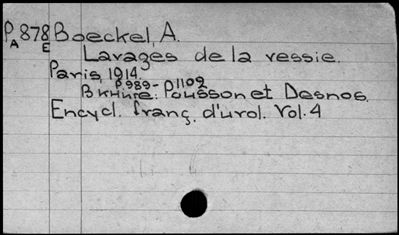 P 878 Boeckel, A.
A E
Lavages de la vessie.
Paris, 1914.
P 989- P 1102
Pousson et Desnos.
Encycl. franç. d'urol. Vol. 4